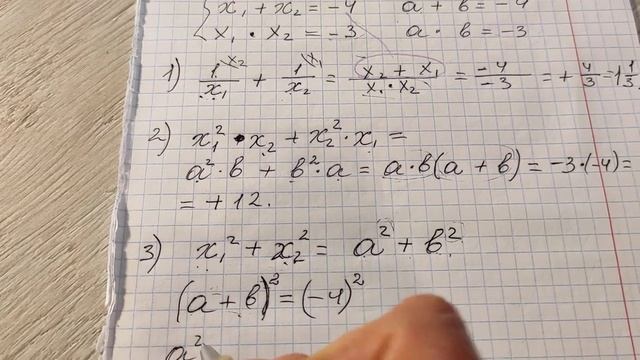 x₁ + x₂ = -4 a + b = -4
x₁ · x₂ = -3 a · b = -3
1) 1/x₁ + 1/x₂ = (x₂ + x₁)/(x₁ · x₂) = -4/-3 = + 4/3 = 1 1/3.
2) x₁² · x₂ + x₂² · x₁ =
a² · b + b² · a = a · b(a + b) = -3 · (-4) =
= + 12.
3) x₁² + x₂² = a² + b²
(a + b)² = (-4)²
a²